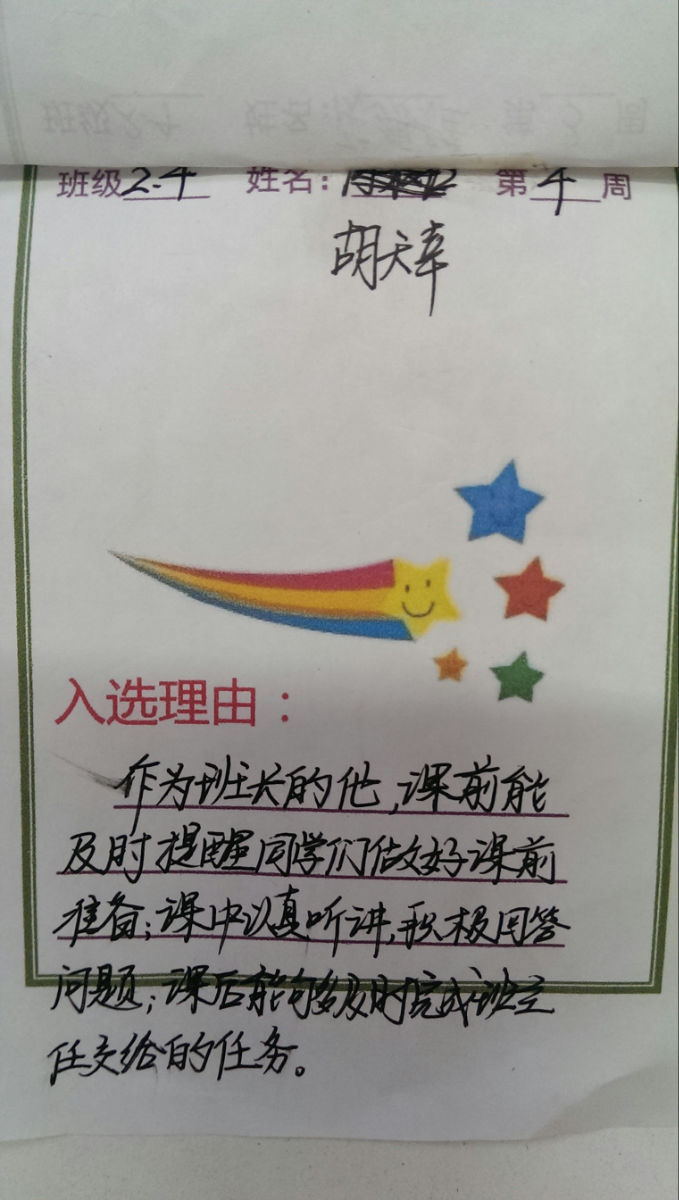 班级2.4 姓名： 第4周
胡天幸
入选理由：
作为班长的他，课前能
及时提醒同学们做好课前
准备；课中认真听讲，积极回答
问题；课后能够及时完成班主
任交给的任务。